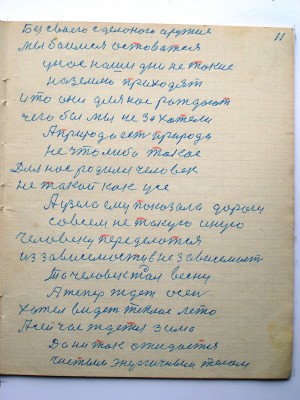 11
Без своего сделоного оружие
мы боимся остоватся
у нас наши дни не такие
на землю приходят
и то они для нас рождают
чего бы мы не захотели
А природа ест природа
не что либо такое
Для нас родилы человек
не такой как усе
А узела ему показала дорогу
совсем не такую иную
Человеку переделатся
из зависимоств независимост
Та человек ждал весну
А тепер ждет осен
Хотел видет теплое лето
А сейчас ждется зима
Да ни так ожидается
чистым энургичным телом